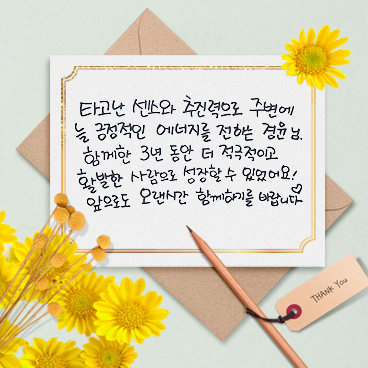 타고난 센스와 추진력으로 주변에
늘 긍정적인 에너지를 전하는 경윤님.
함께한 3년 동안 더 적극적이고
활발한 사람으로 성장할 수 있었어요!
앞으로도 오랜시간 함께하기를 바랍니다♡
THANK YOU